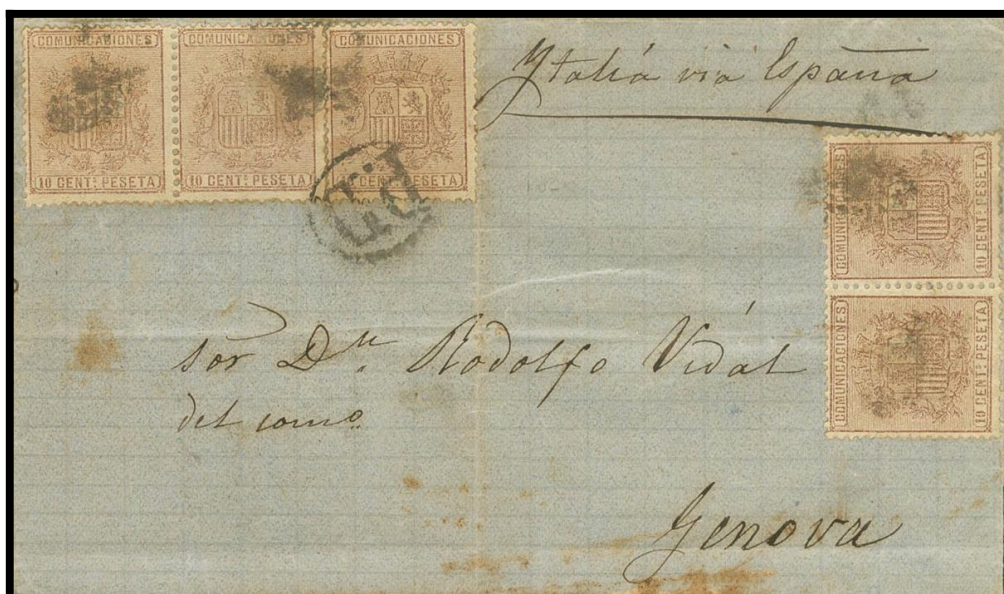 COMUNICACIONES COMUNICACIONES COMUNICACIONES
10 CENT.s PESETA 10 CENT.s PESETA
P.D
Ytalia via España
COMUNICACIONES
10 CENT.s PESETA
COMUNICACIONES
10 CENT.s PESETA
Sor Dn. Rodolfo Vidal
del como.
Genova